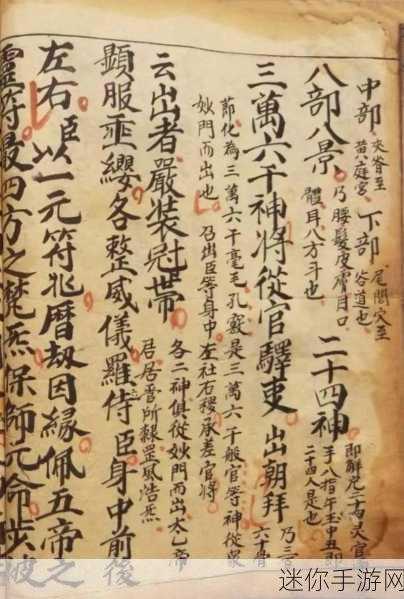 中部 夾脊至 下部 尾閭穴至
谷道也
八部八景 乃腰髮皮膚目口
體耳八方斗也 二十四神
二十四人是也
三萬六千神將從官驛吏 出朝拜 乃三
六十骨
節化為三萬六千毫毛孔竅是三萬六千般官等神從眾
妙門而出也 召出臣等身中左社右稷承差官將
云出者嚴裝冠帶 各二神俱從妙門而出太乙帝
君居普所隸罡風浩炁
顯服垂纓各整威儀羅侍臣身中前
左右臣以一元符兆曆劫因緣佩五帝
靈符最四方之炁保師元命
彼之後
迷你手游网